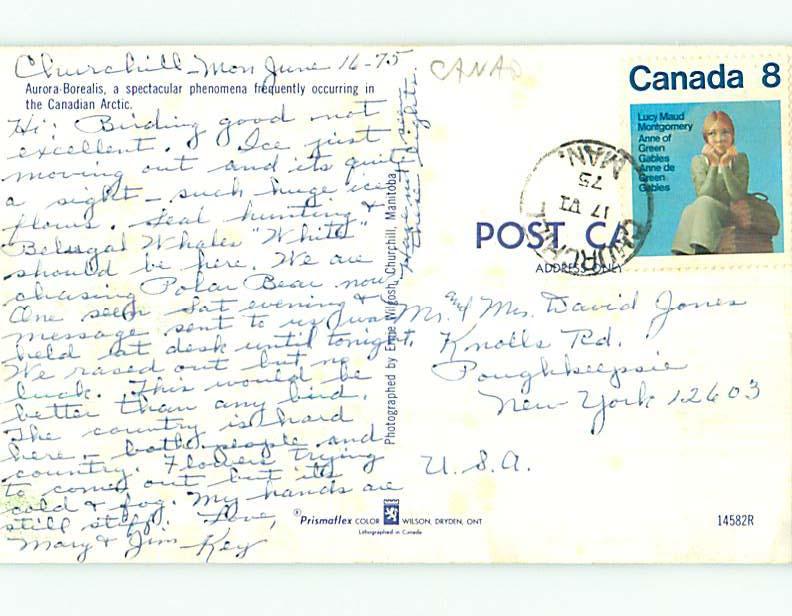 Churchill - Mon June 16-75
Aurora-Borealis, a spectacular phenomena frequently occurring in
the Canadian Arctic.
Hi; Birding good not
excellent. Ice just
moving out and its quite
a sight - such huge ice
flows. Seal hunting &
Belugal Whales "White"
should be here. We are
chasing Polar Bear now
One seen Sat evening &
message sent to us was
held at desk until tonight.
We raced out but no
luck. This would be
better than any bird.
The country is hard
here - both people and
country. Flowers trying
to come out but its
cold & fog. My hands are
still stiff. Love,
Mary & Jim Key
Have not
the
lights.
Photographed by Ernie Wilgosh, Churchill, Manitoba
CANAD
Canada 8
Lucy Maud
Montgomery
Anne of
Green
Gables
Anne de
Green
Gables
CHURCHILL
17 VI
75
MAN.
POST CA
ADDRESS ONLY
Mr. and Mrs. David Jones
Knolls Rd.
Poughkeepsie
New York 12603
U.S.A.
Prismaflex COLOR WILSON, DRYDEN, ONT
Lithographed in Canada
14582R